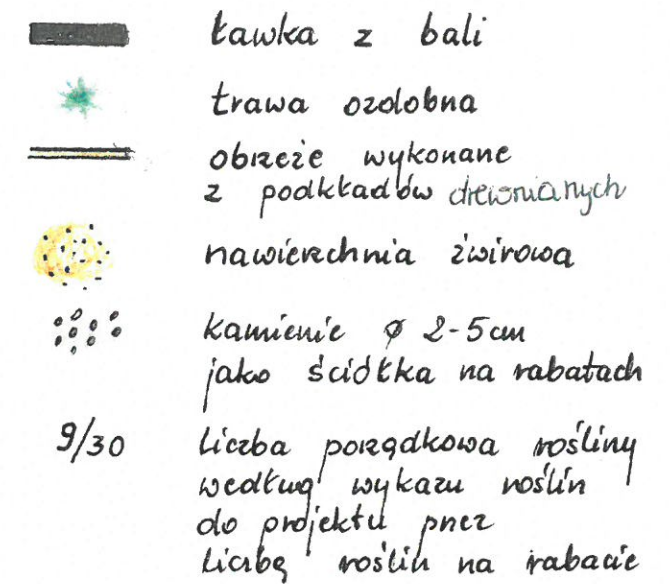 ławka z bali
trawa ozdobna
obrzeże wykonane
z podkładów drewnianych
nawierzchnia żwirowa
kamienie ø 2-5cm
jako ściółka na rabatach
9/30 liczba porządkowa rośliny
według wykazu roślin
do projektu przez
liczbę roślin na rabacie